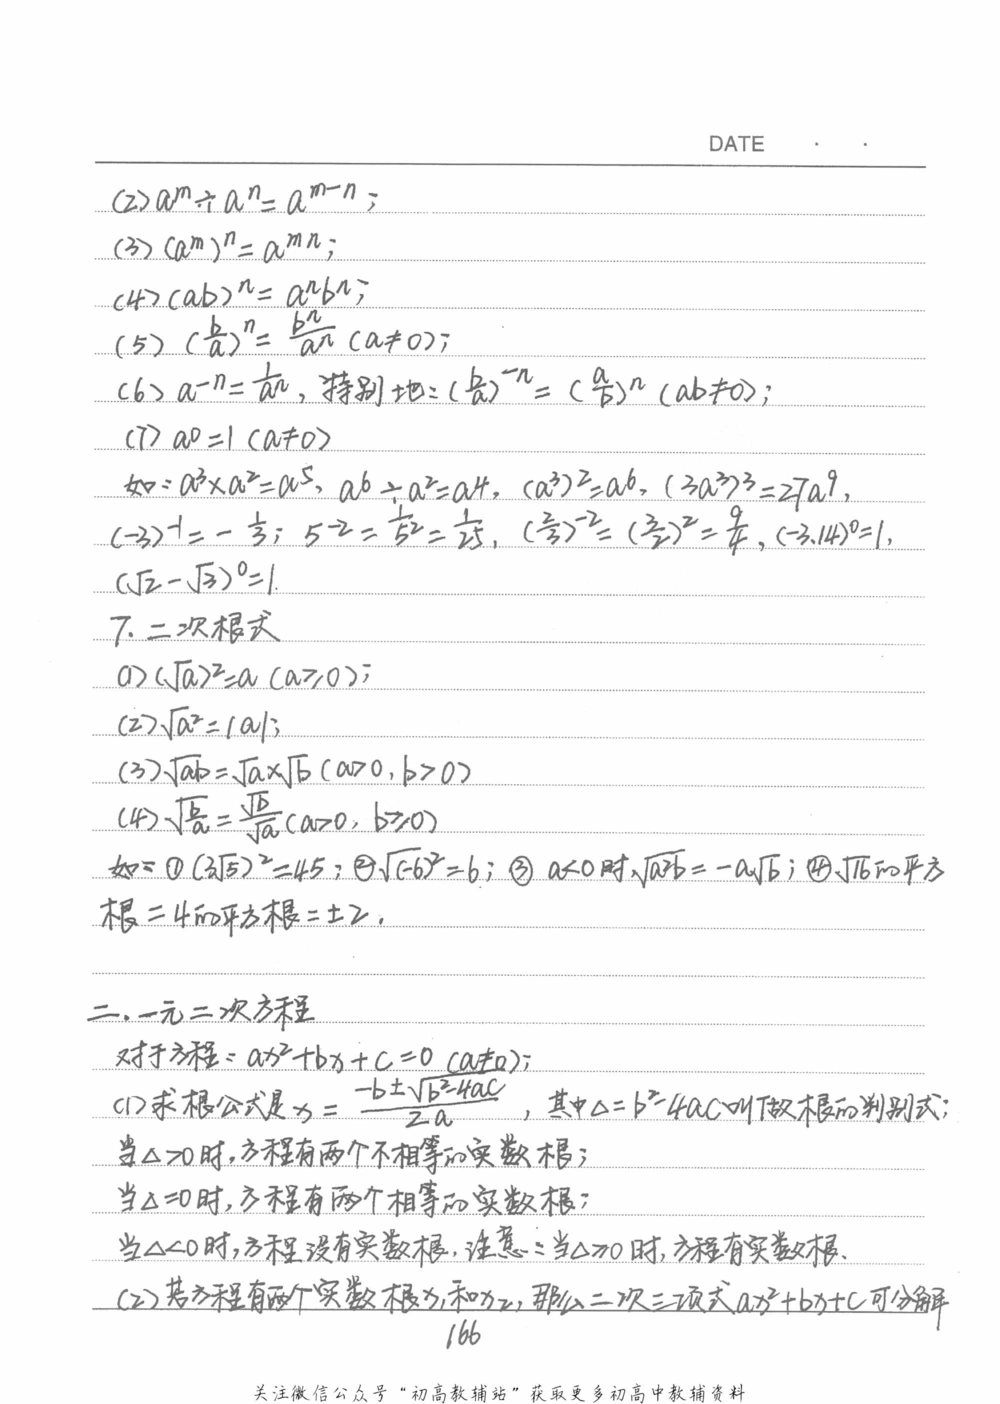 DATE · ·
(2) aᵐ÷aⁿ=aᵐ⁻ⁿ;
(3) (aᵐ)ⁿ=aᵐⁿ;
(4) (ab)ⁿ=aⁿbⁿ;
(5) (b/a)ⁿ=bⁿ/aⁿ (a≠0);
(6) a⁻ⁿ=1/aⁿ, 特别地:(b/a)⁻ⁿ=(a/b)ⁿ (ab≠0);
(7) a⁰=1 (a≠0)
如:a³×a²=a⁵, a⁶÷a²=a⁴, (a³)²=a⁶, (3a³)³=27a⁹,
(-3)⁻¹=-1/3; 5⁻²=1/5²=1/25, (2/3)⁻²=(3/2)²=9/4, (-3.14)⁰=1,
(√2-√3)⁰=1.
7.二次根式
(1) (√a)²=a (a≥0);
(2) √a²=|a|;
(3) √ab=√a×√b (a>0, b>0)
(4) √(b/a)=√b/√a (a>0, b≥0)
如:①(3√5)²=45;②√(-6)²=6;③a<0时,√a²b=-a√b;④√16的平方
根=4的平方根=±2.
二.一元二次方程
对于方程:ax²+bx+c=0 (a≠0);
(1)求根公式是x=(-b±√(b²-4ac))/2a,其中△=b²-4ac叫做根的判别式;
当△>0时,方程有两个不相等的实数根;
当△=0时,方程有两个相等的实数根;
当△<0时,方程没有实数根.注意:当△≥0时,方程有实数根.
(2)若方程有两个实数根x₁和x₂,那么二次三项式ax²+bx+c可分解
166
关注微信公众号“初高教辅站”获取更多初高中教辅资料